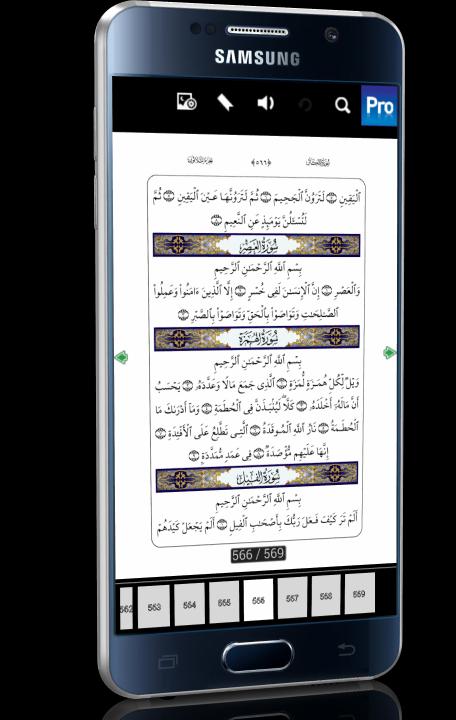 SAMSUNG
Pro
﴿٥٦٦﴾
ٱلْيَقِينِ ۝ لَتَرَوُنَّ ٱلْجَحِيمَ ۝ ثُمَّ لَتَرَوُنَّهَا عَيْنَ ٱلْيَقِينِ ۝ ثُمَّ
لَتُسْـَٔلُنَّ يَوْمَئِذٍ عَنِ ٱلنَّعِيمِ ۝
سُورَةُ العَصْرِ
بِسْمِ ٱللَّهِ ٱلرَّحْمَٰنِ ٱلرَّحِيمِ
وَٱلْعَصْرِ ۝ إِنَّ ٱلْإِنسَٰنَ لَفِى خُسْرٍ ۝ إِلَّا ٱلَّذِينَ ءَامَنُوا۟ وَعَمِلُوا۟
ٱلصَّٰلِحَٰتِ وَتَوَاصَوْا۟ بِٱلْحَقِّ وَتَوَاصَوْا۟ بِٱلصَّبْرِ ۝
سُورَةُ الهُمَزَةِ
بِسْمِ ٱللَّهِ ٱلرَّحْمَٰنِ ٱلرَّحِيمِ
وَيْلٌ لِّكُلِّ هُمَزَةٍ لُّمَزَةٍ ۝ ٱلَّذِى جَمَعَ مَالًا وَعَدَّدَهُۥ ۝ يَحْسَبُ
أَنَّ مَالَهُۥٓ أَخْلَدَهُۥ ۝ كَلَّا لَيُنۢبَذَنَّ فِى ٱلْحُطَمَةِ ۝ وَمَآ أَدْرَىٰكَ مَا
ٱلْحُطَمَةُ ۝ نَارُ ٱللَّهِ ٱلْمُوقَدَةُ ۝ ٱلَّتِى تَطَّلِعُ عَلَى ٱلْأَفْـِٔدَةِ ۝
إِنَّهَا عَلَيْهِم مُّؤْصَدَةٌ ۝ فِى عَمَدٍ مُّمَدَّدَةٍۭ ۝
سُورَةُ الفِيلِ
بِسْمِ ٱللَّهِ ٱلرَّحْمَٰنِ ٱلرَّحِيمِ
أَلَمْ تَرَ كَيْفَ فَعَلَ رَبُّكَ بِأَصْحَٰبِ ٱلْفِيلِ ۝ أَلَمْ يَجْعَلْ كَيْدَهُمْ
566 / 569
562 563 564 565 566 567 568 569